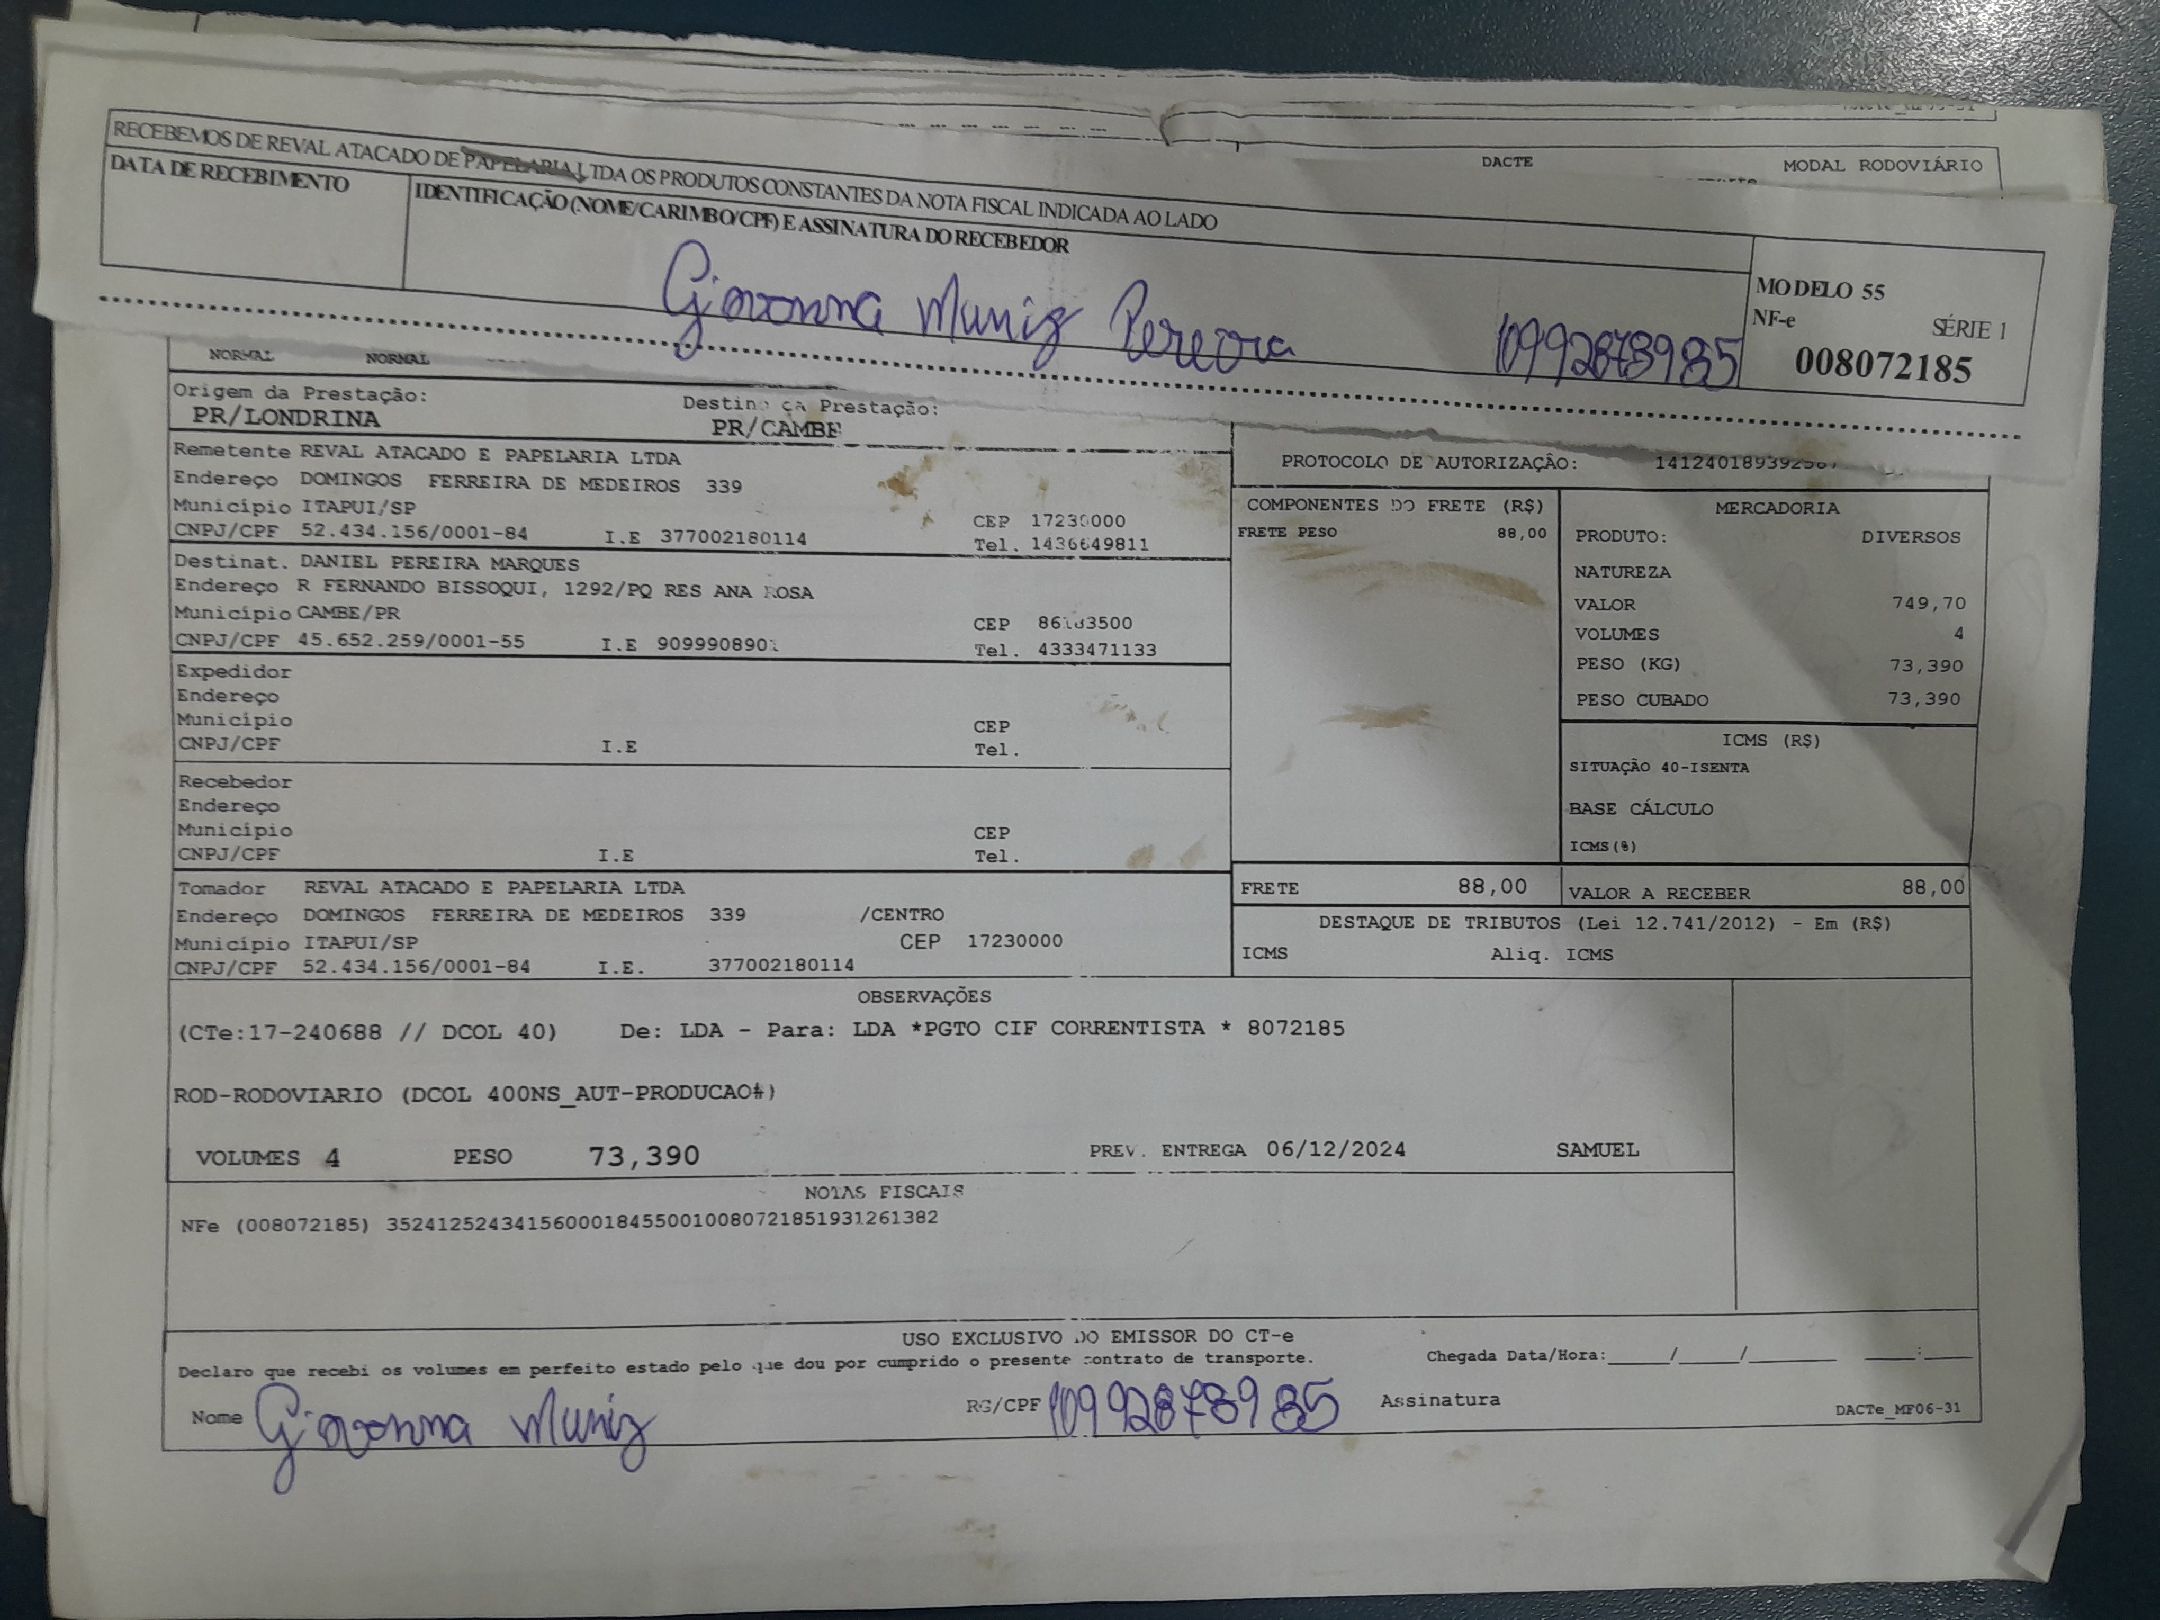 DACTE MODAL RODOVIÁRIO
RECEBEMOS DE REVAL ATACADO DE PAPELARIA LTDA OS PRODUTOS CONSTANTES DA NOTA FISCAL INDICADA AO LADO
DATA DE RECEBIMENTO
IDENTIFICAÇÃO (NOME/CARIMBO/CPF) E ASSINATURA DO RECEBEDOR
Giovonna Muniz Pereira 10992873985
MODELO 55
NF-e SÉRIE 1
008072185
NORMAL NORMAL
Origem da Prestação: Destino da Prestação:
PR/LONDRINA PR/CAMBE
Remetente REVAL ATACADO E PAPELARIA LTDA
Endereço DOMINGOS FERREIRA DE MEDEIROS 339
Município ITAPUI/SP CEP 17230000
CNPJ/CPF 52.434.156/0001-84 I.E 377002180114 Tel. 1436649811
Destinat. DANIEL PEREIRA MARQUES
Endereço R FERNANDO BISSOQUI, 1292/PQ RES ANA ROSA
Município CAMBE/PR CEP
CNPJ/CPF 45.652.259/0001-55 I.E Tel. 4333471133
Expedidor
Endereço
Município CEP
CNPJ/CPF I.E Tel.
Recebedor
Endereço
Município CEP
CNPJ/CPF I.E Tel.
Tomador REVAL ATACADO E PAPELARIA LTDA
Endereço DOMINGOS FERREIRA DE MEDEIROS 339 /CENTRO
Município ITAPUI/SP CEP 17230000
CNPJ/CPF 52.434.156/0001-84 I.E. 377002180114
PROTOCOLO DE AUTORIZAÇÃO:
COMPONENTES DO FRETE (R$)
FRETE PESO 88,00
MERCADORIA
PRODUTO: DIVERSOS
NATUREZA
VALOR 749,70
VOLUMES 4
PESO (KG) 73,390
PESO CUBADO 73,390
ICMS (R$)
SITUAÇÃO 40-ISENTA
BASE CÁLCULO
ICMS(%)
FRETE 88,00 VALOR A RECEBER 88,00
DESTAQUE DE TRIBUTOS (Lei 12.741/2012) - Em (R$)
ICMS Aliq. ICMS
OBSERVAÇÕES
(CTe:17-240688 // DCOL 40) De: LDA - Para: LDA *PGTO CIF CORRENTISTA * 8072185
ROD-RODOVIARIO (DCOL 400NS_AUT-PRODUCAO#)
VOLUMES 4 PESO 73,390 PREV. ENTREGA 06/12/2024 SAMUEL
NOTAS FISCAIS
NFe (008072185) 35241252434156000184550010080721851931261382
USO EXCLUSIVO DO EMISSOR DO CT-e
Declaro que recebi os volumes em perfeito estado pelo que dou por cumprido o presente contrato de transporte. Chegada Data/Hora:_____/_____/_______ ____:____
Nome Giovonna Muniz RG/CPF 10992873985 Assinatura
DACTe_MF06-31